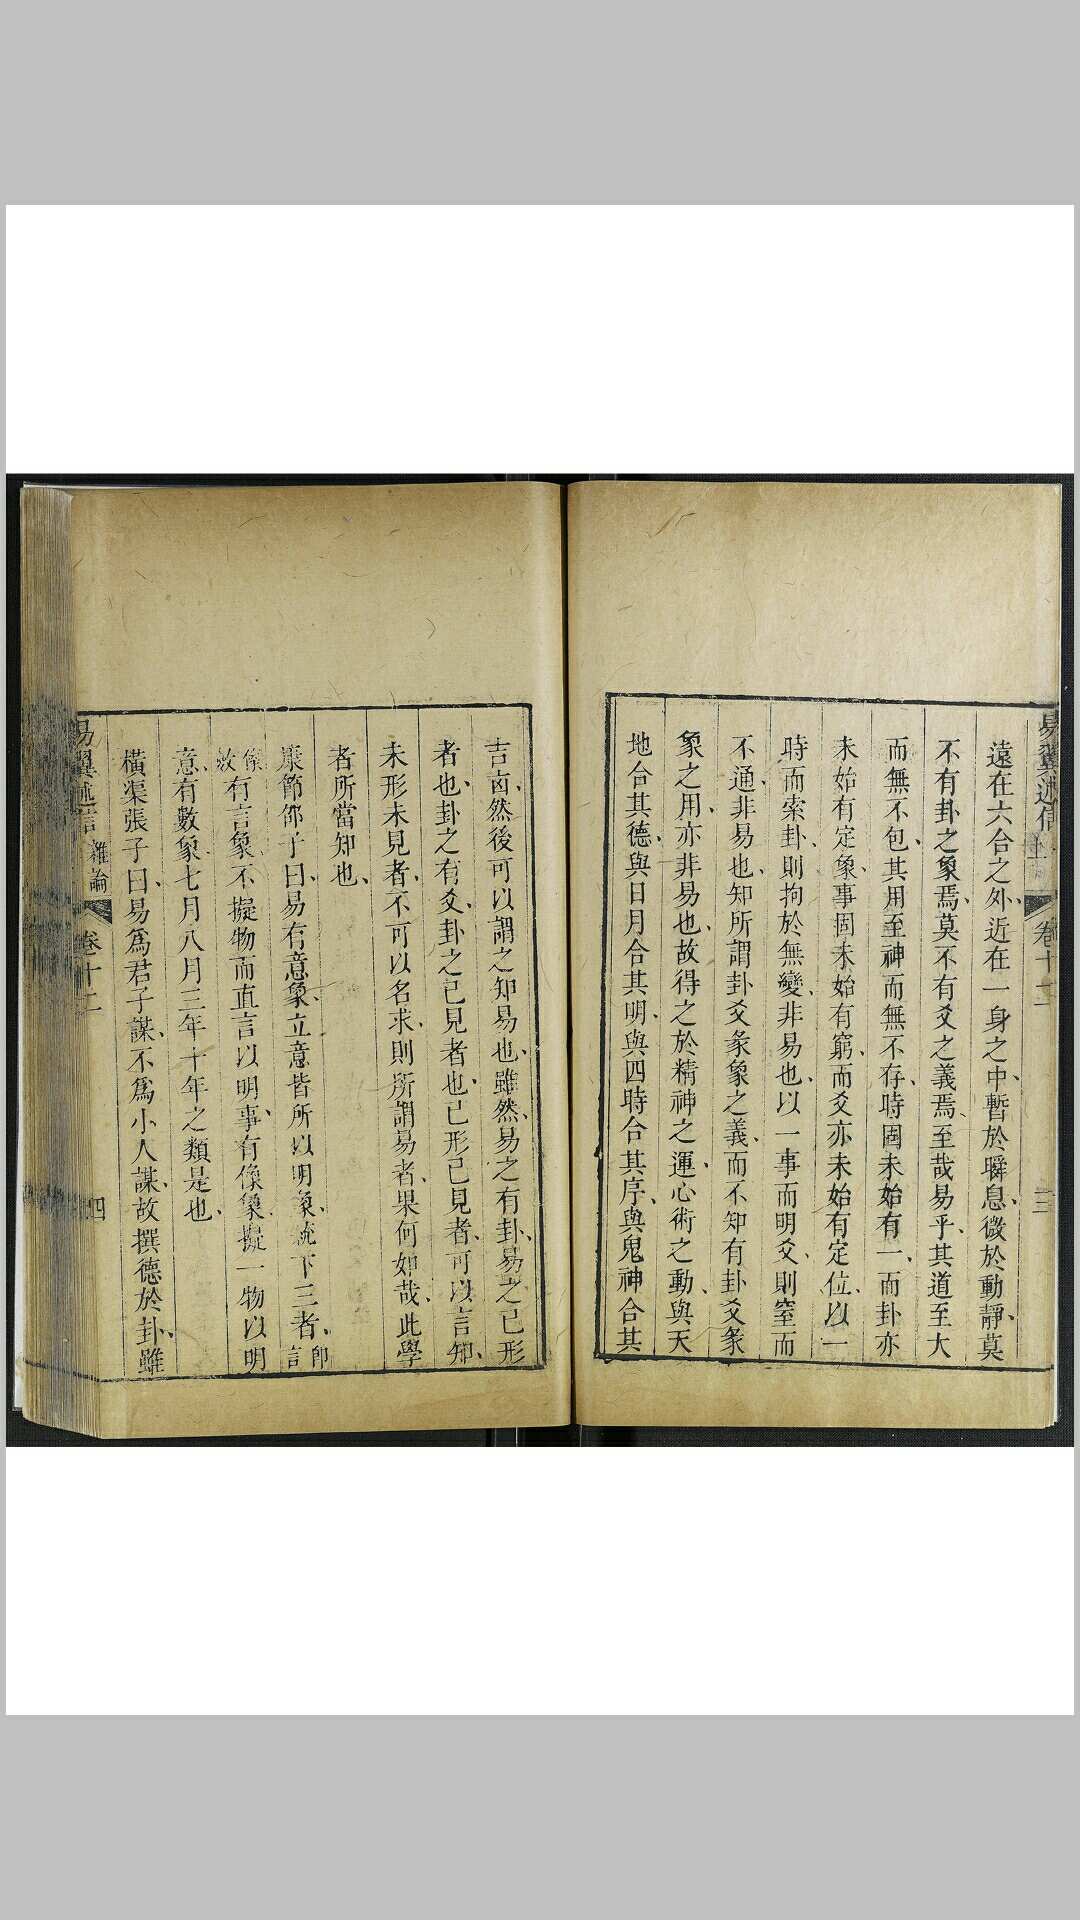 易翼述信
卷十二
三
遠在六合之外、近在一身之中、暫於瞬息、微於動靜、莫
不有卦之象焉、莫不有爻之義焉、至哉易乎、其道至大
而無不包、其用至神而無不存、時固未始有一、而卦亦
未始有定象、事固未始有窮、而爻亦未始有定位、以一
時而索卦、則拘於無變、非易也、以一事而明爻、則窒而
不通、非易也、知所謂卦爻彖象之義、而不知有卦爻彖
象之用、亦非易也、故得之於精神之運、心術之動、與天
地合其德、與日月合其明、與四時合其序、與鬼神合其
吉凶、然後可以謂之知易也、雖然、易之有卦、易之已形
者也、卦之有爻、卦之已見者也、已形已見者、可以言知、
未形未見者、不可以名求、則所謂易者、果何如哉、此學
者所當知也、
康節邵子曰、易有意象、立意皆所以明象、統下三者、卽言
像數有言象、不擬物而直言以明事、有像象、擬一物以明
意、有數象、七月八月三年十年之類是也、
橫渠張子曰、易爲君子謀、不爲小人謀、故撰德於卦、雖
易翼述信
雜論
卷十二
四